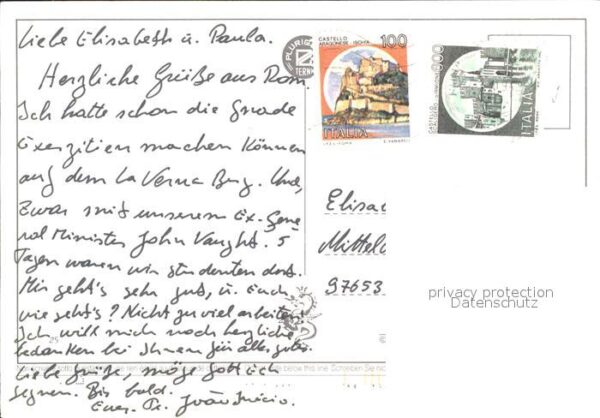 Liebe Elisabeth u. Paula.
Herzliche Grüße aus Rom.
Ich hatte schon die Gnade
Exerzitien machen können
auf dem La Verna Berg. Und,
zwar mit unserem Ex-Gene
ral Minister John Vaught. 5
Tagen waren wir studenten dort.
Mir geht's sehr gut, u. Euch
wie geht's? Nicht zu viel arbeiten!
Ich will mich noch herzliche
bedanken bei Ihnen für alles gutes.
Liebe Grüße, möge Gott Euch
segnen. Bis bald.
Euer. Fr. João Inácio.
CASTELLO
ARAGONESE - ISCHIA
100
ITALIA
ITALIA
Elisa
Mittel
97653
privacy protection
Datenschutz